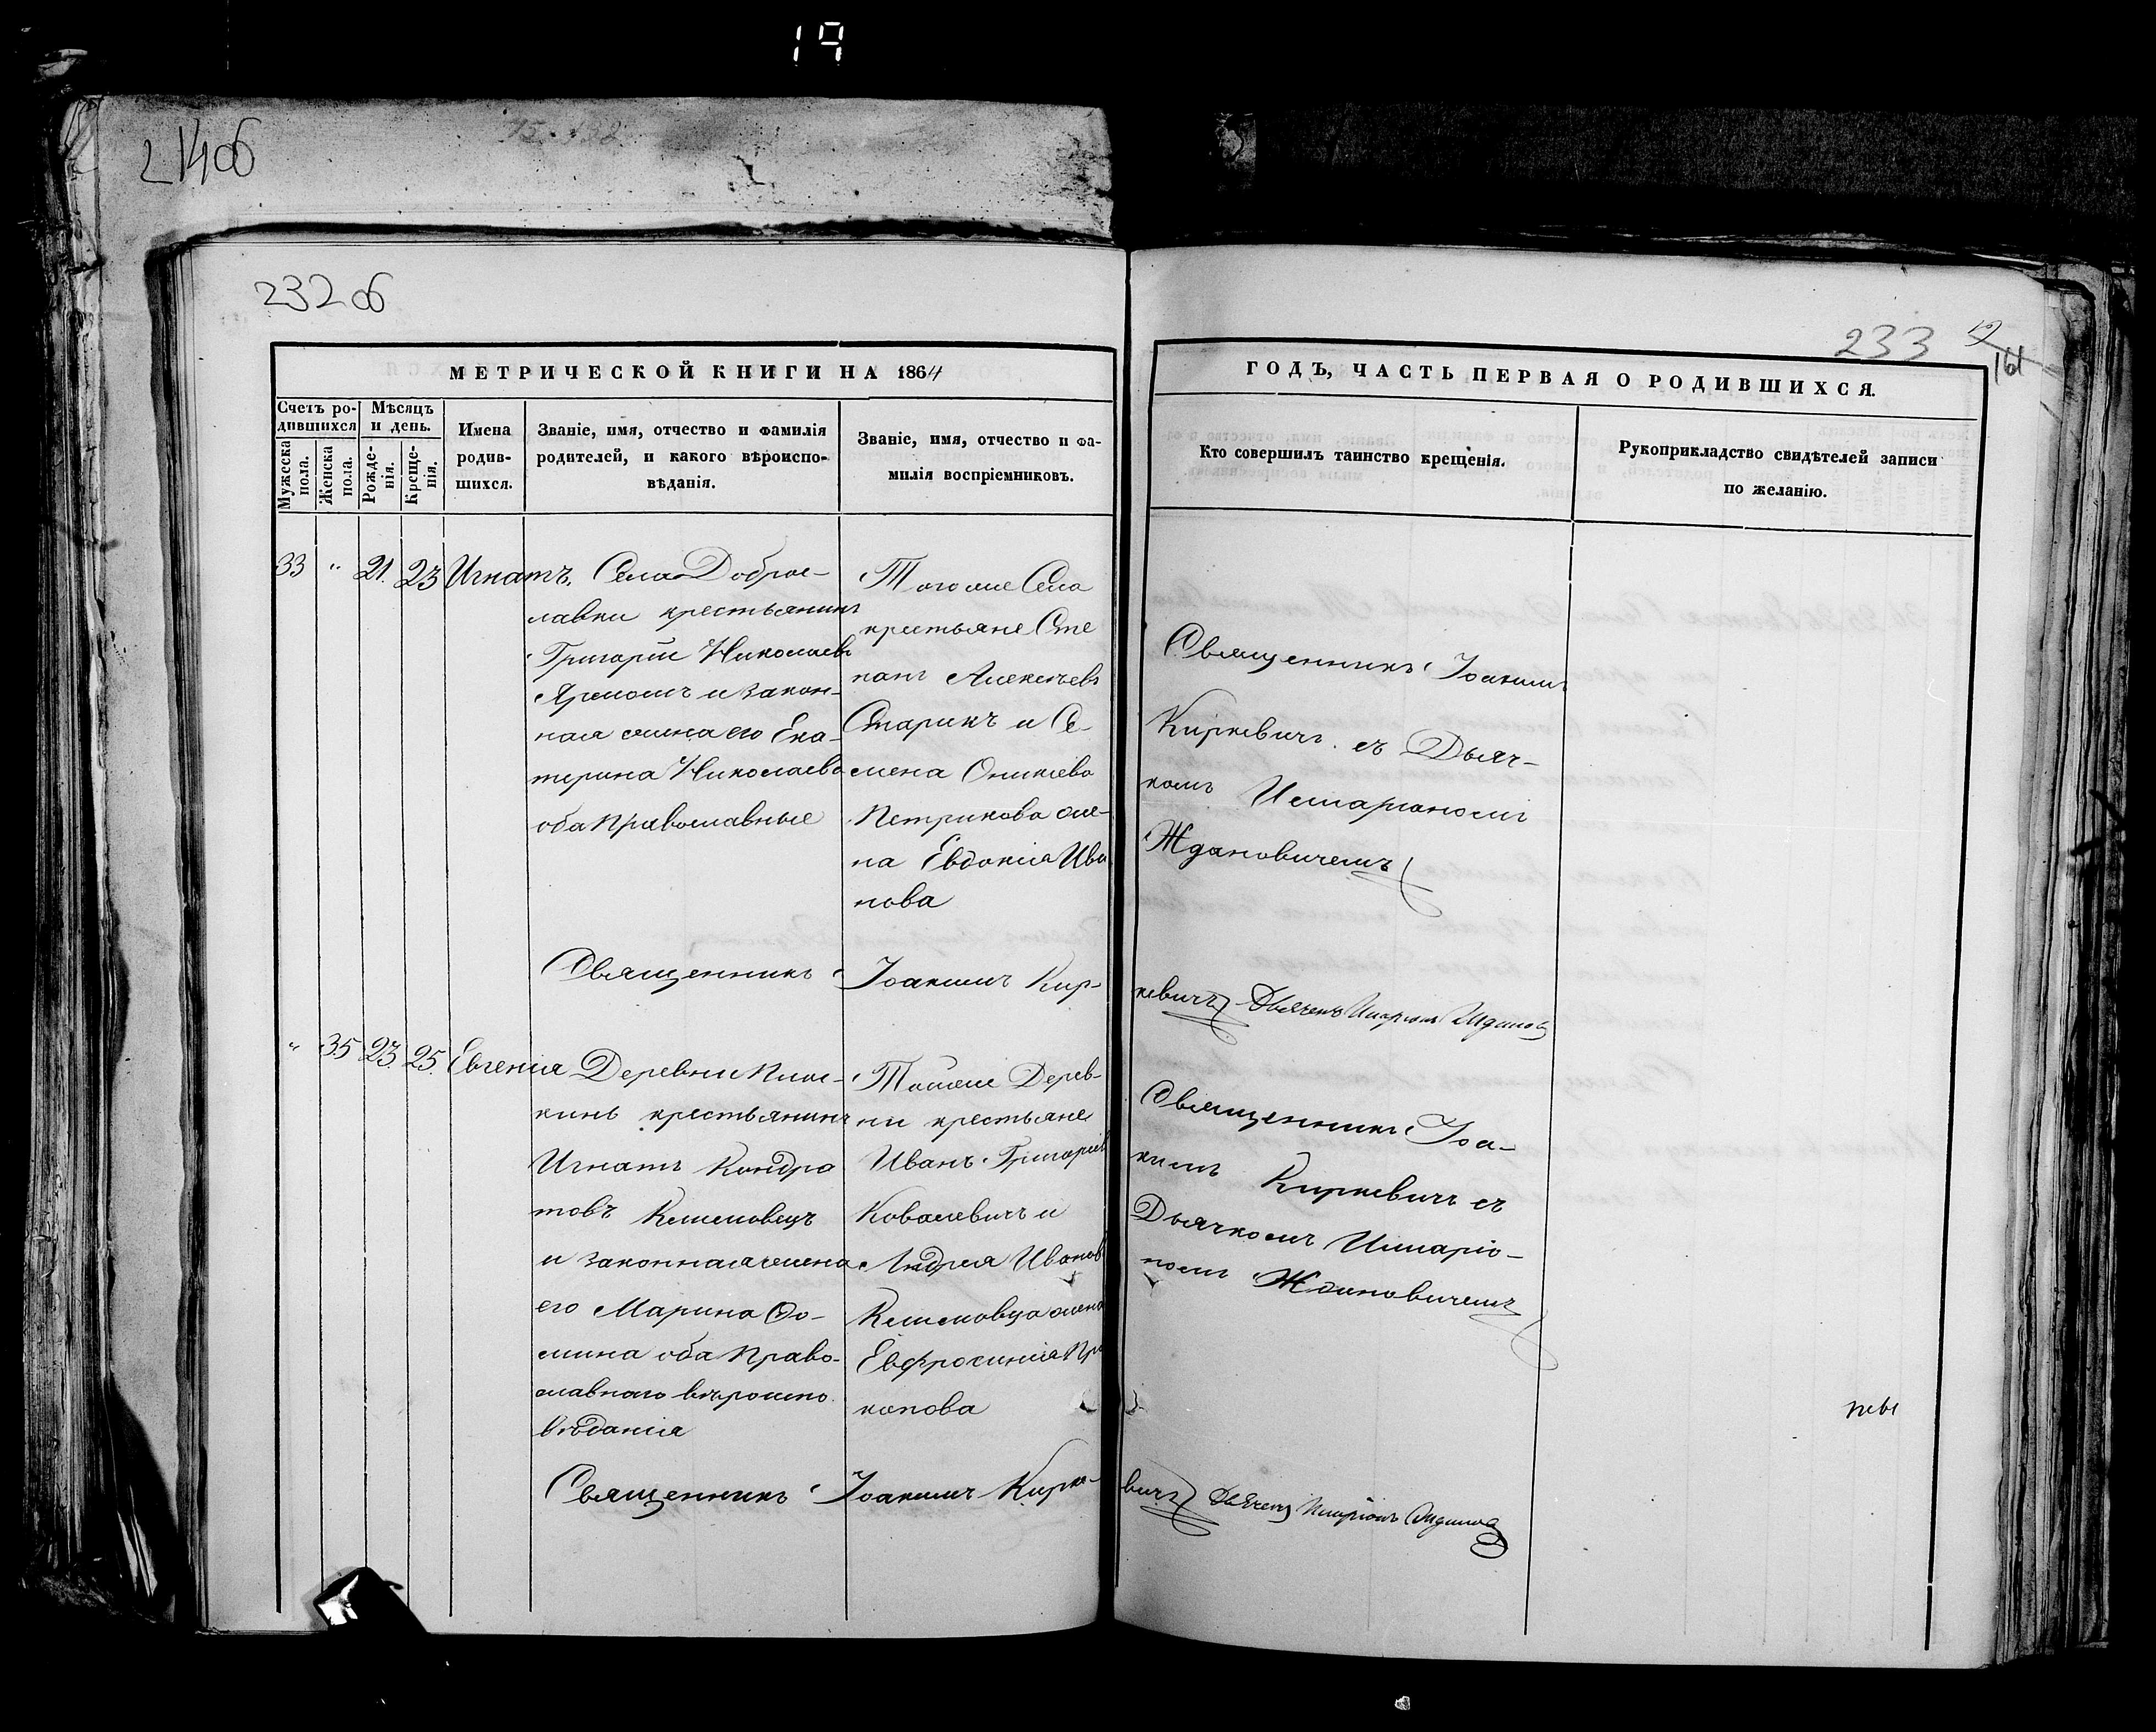 19
21406
232 об
233
161
МЕТРИЧЕСКОЙ КНИГИ НА 1864
ГОДЪ, ЧАСТЬ ПЕРВАЯ О РОДИВШИХСЯ.
Счетъ ро-
дившихся
Мужеска
пола.
Женска
пола.
Мѣсяцъ
и день.
Рожде-
нія.
Креще-
нія.
Имена
родив-
шихся.
Званіе, имя, отчество и фамилія
родителей, и какого вѣроиспо-
вѣданія.
Званіе, имя, отчество и фа-
милія воспріемниковъ.
Кто совершилъ таинство крещенія.
Рукоприкладство свидѣтелей записи
по желанію.
33 " 21. 23 Игнатъ.
Села Доброс-
лавки крестьянинъ
Григорій Николаевъ
и закон-
ная жена его Ека-
терина Николаева
оба Православные
Того же Села
крестьяне Сте
панъ Алексѣевъ
Старикъ и Се-
мена Оникіева
Петрикова же-
на Евдокія Ива
нова
Священникъ Іоакимъ
Киркевичъ съ Дьяч-
комъ Иларіономъ
Ждановичемъ
Священникъ Іоакимъ Кир-
кевичъ Дьячекъ Иларіонъ
" 35 23. 25. Евгенія
Деревни Плос-
кинь крестьянинъ
Игнатъ Кондра
товъ Климовецъ
и законная жена
его Марина Ѳо-
мина оба Право-
славнаго вѣроиспо
вѣданія
Той же Дерев-
ни крестьяне
Иванъ Григоріевъ
Ковалевичъ и
Андрея Иванов
Климовца жена
Евфросинія Про
копова
Священникъ Іоа-
кимъ Киркевичъ съ
Дьячкомъ Иларіо-
номъ Ждановичемъ
Священникъ Іоакимъ Кирке-
вичъ Дьячекъ Иларіонъ